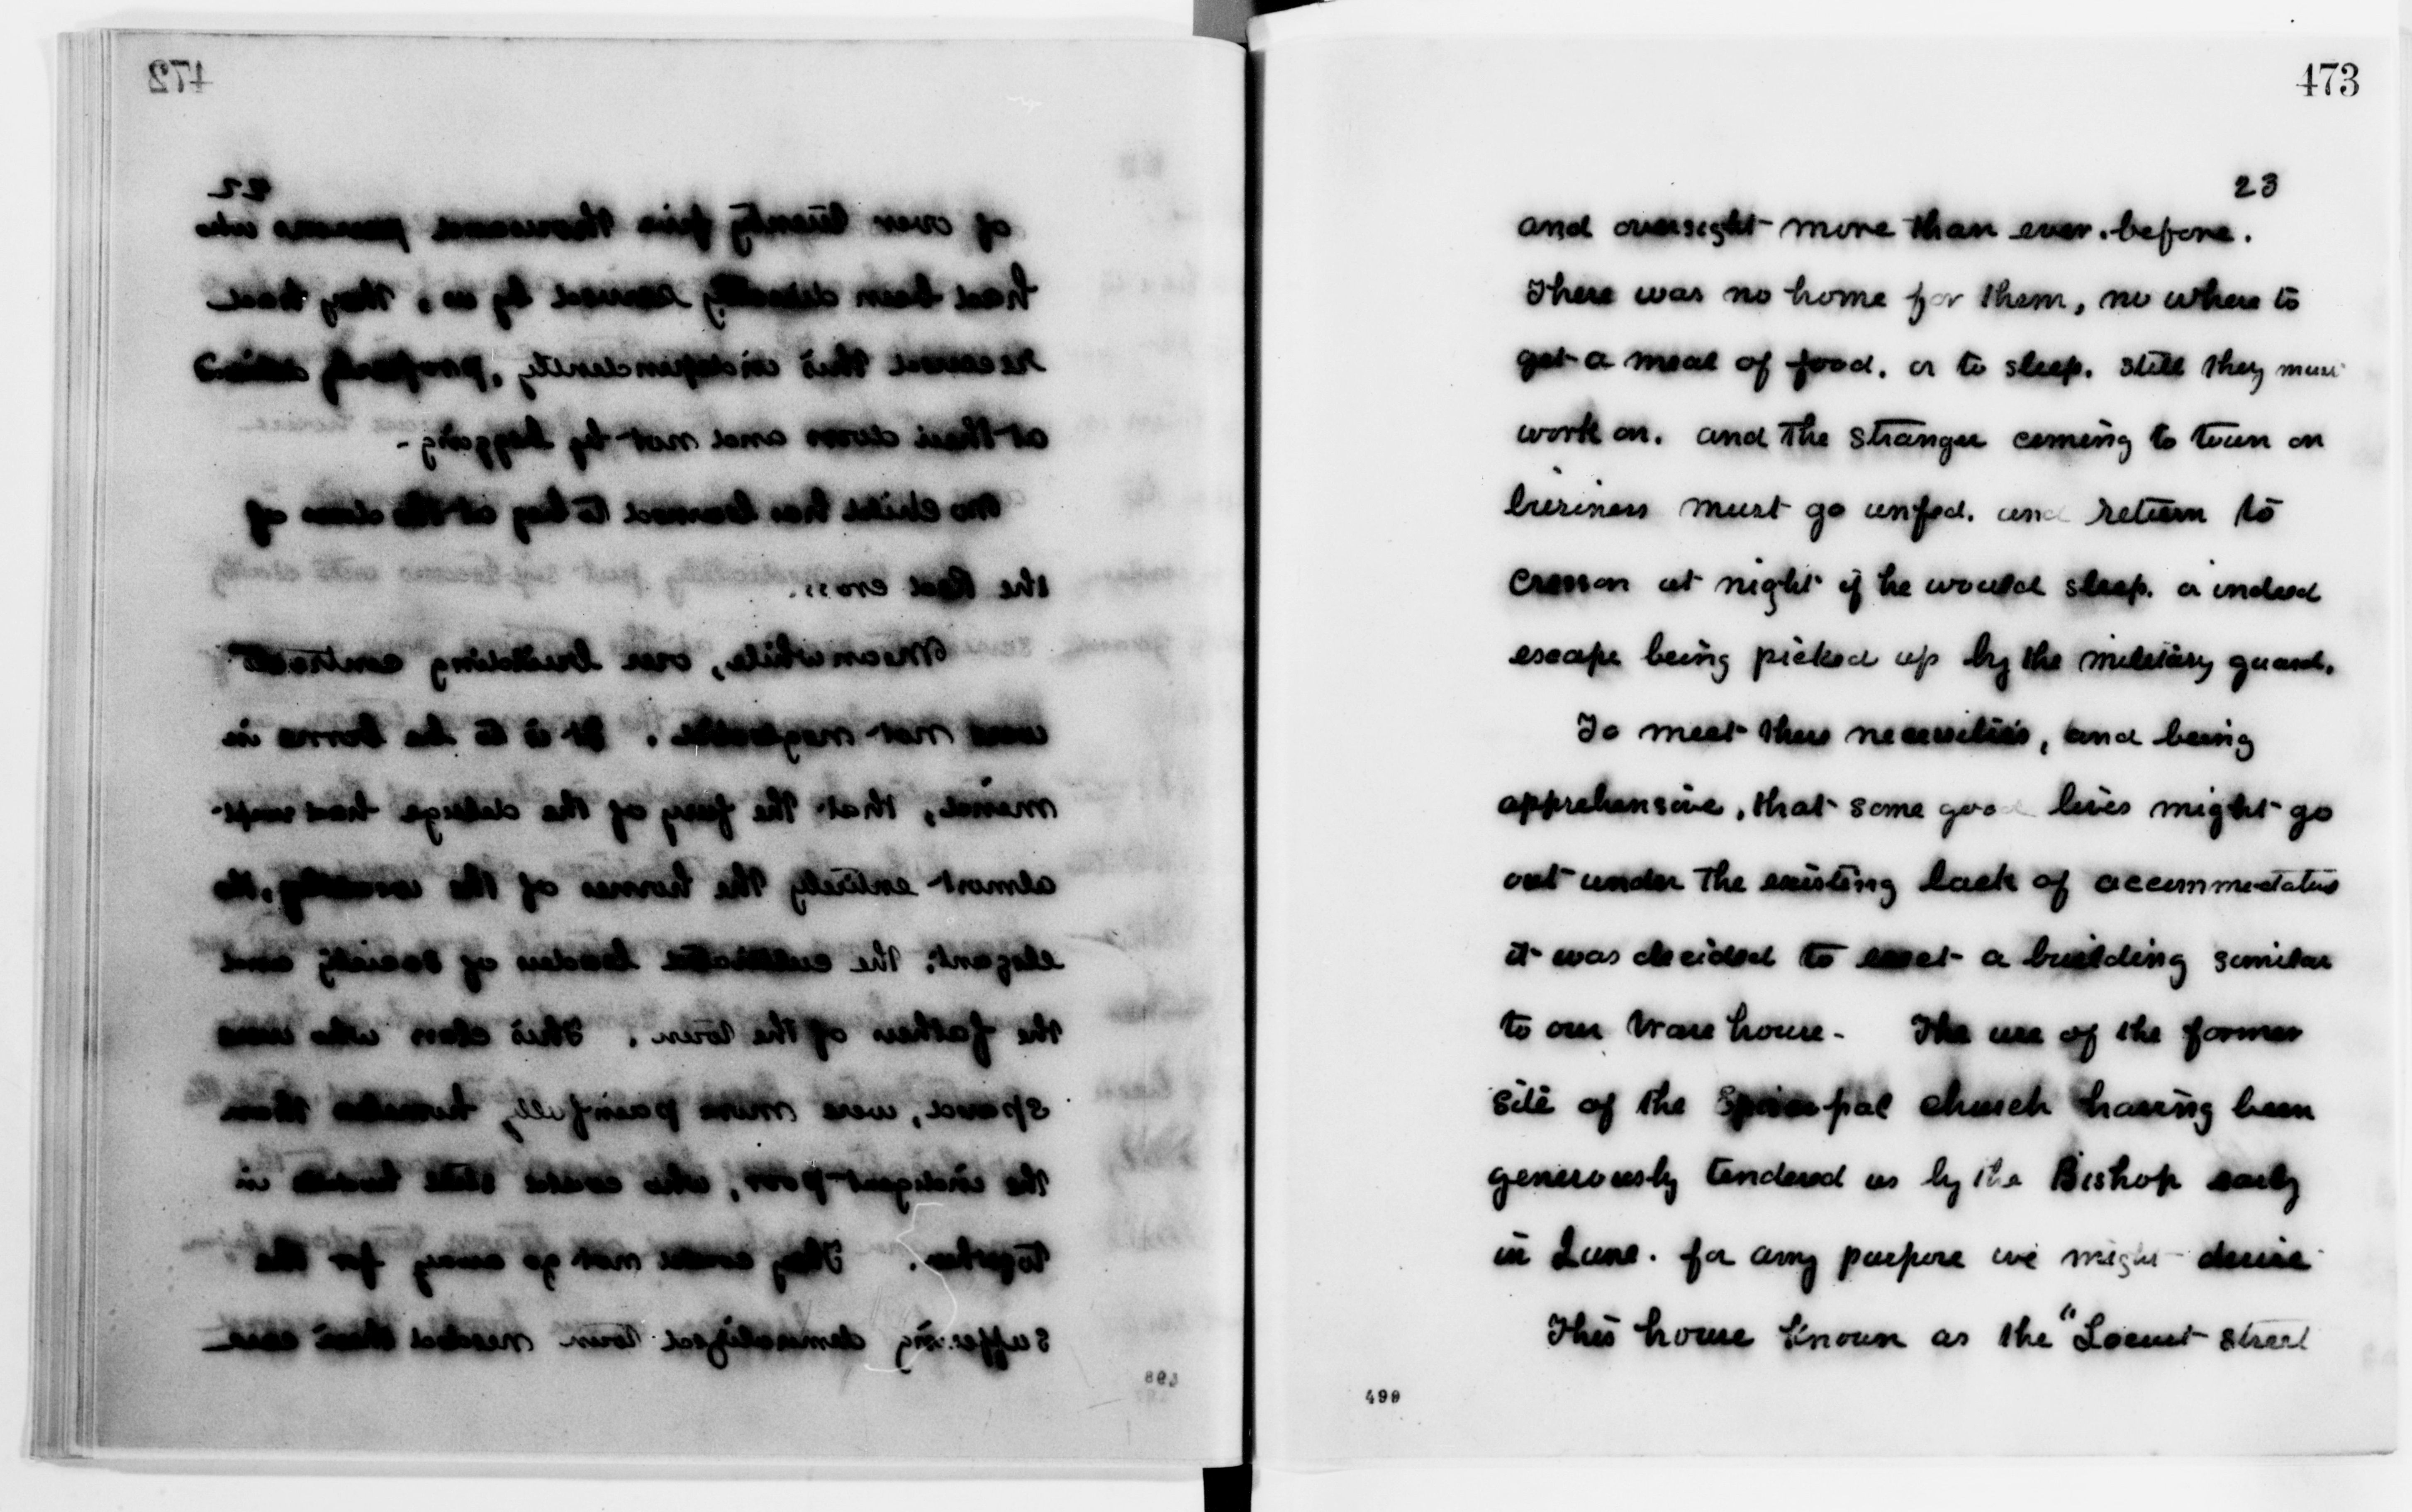 472
22
of over twenty five thousand persons who
had been directly served by us, they had
received this independently, properly
at their doors and not by begging -
No child has learned to beg at the doors of
the Red cross.
Meanwhile, our building contracts
were not neglected. It is to be borne in
mind, that the fury of the deluge had swept
almost entirely the homes of the wealthy, the
elegant, the cultivated leaders of society and
the fathers of the town. This class who were
spared, were more painfully homeless than
the indigent poor, who could still huddle in
together. They could not go away for the
suffering demoralized town needed their care
498
473
23
and oversight more than ever. before.
There was no home for them, no where to
get a meal of food. or to sleep. Still they must
work on. and The stranger coming to town on
business must go unfed. and return to
Cresson at night if he would sleep. or indeed
escape being picked up by the military guard.
To meet these necessities, and being
apprehensive, that some good lives might go
out under The existing lack of accommodation
it was decided to erect a building similar
to our Ware house - The use of the former
site of the Episcopal church having been
generously tendered us by the Bishop early
in June. for any purpose we might desire
This house known as the "Locust street
499